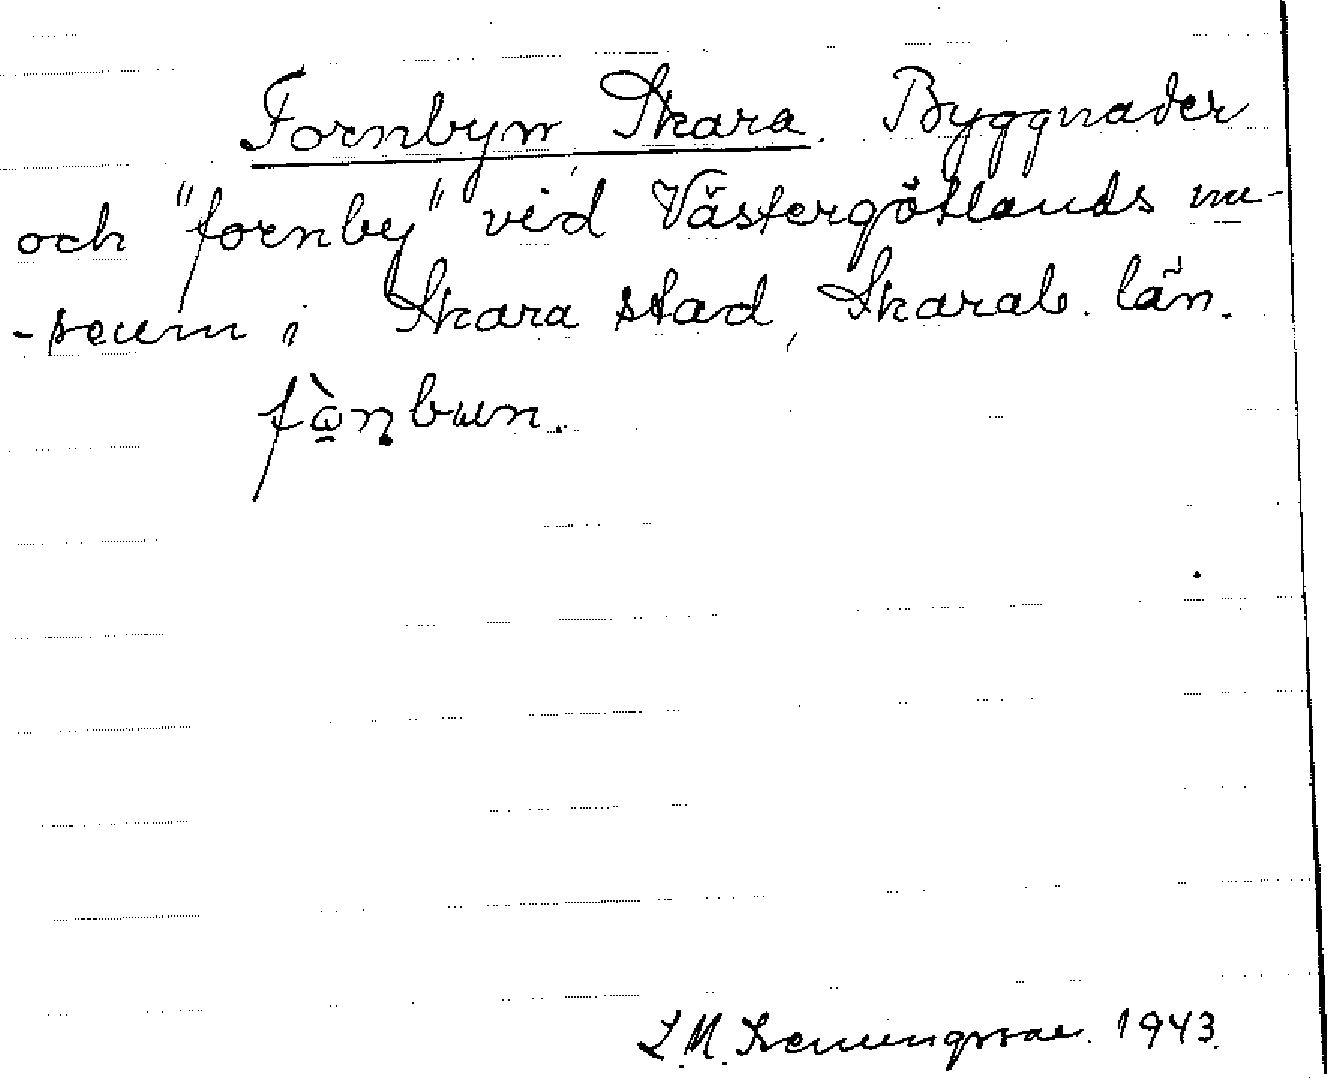 Fornbyn, Skara. Byggnader
och "fornby" vid Västergötlands mu-
-seum i Skara stad, Skarab. län.
fὼ̱ṇbun.
L.M. 1943.